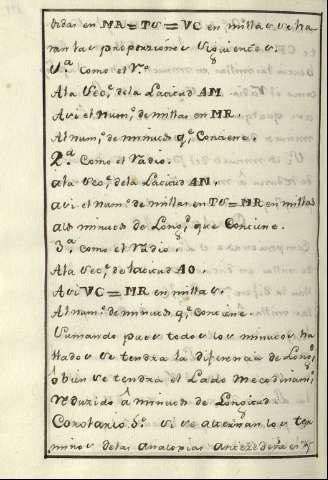 bidas en MR=TV=VC en millas se ha
ran las proporziones siguientes.
1.ª Como el R.º
A la Sec.e de la Latitud AM
Asi el num.o de millas en MR.
Al num.o de minutos q.e Contiene.
2.ª Como el Radio.
a la Sec.e de la Latitud AN.
asi el num.o de millas en TV=MR en millas
a los minutos de Long.d que Contiene.
3.ª como el Radio.
A la sec.e de latitud AO.
Asi VC=MR en millas.
Al num.o de minutos q.e contiene.
Sumando pues todos los minutos ha
llados se tendra la diferencia de Long.d
ô bien se tendra el Lado Mecodinam.l
reduzido â minutos de Longitud.
Corolario 5.º si se alternan los ter
minos de las Analogias antezedentes